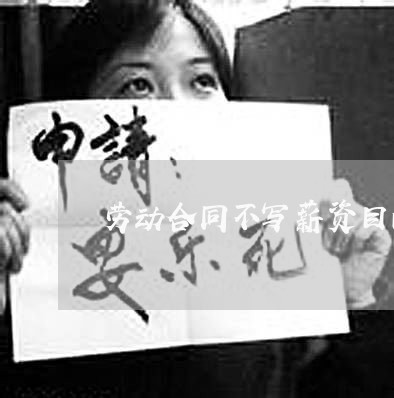 申請：
劳动合同不写薪资目
安乐死